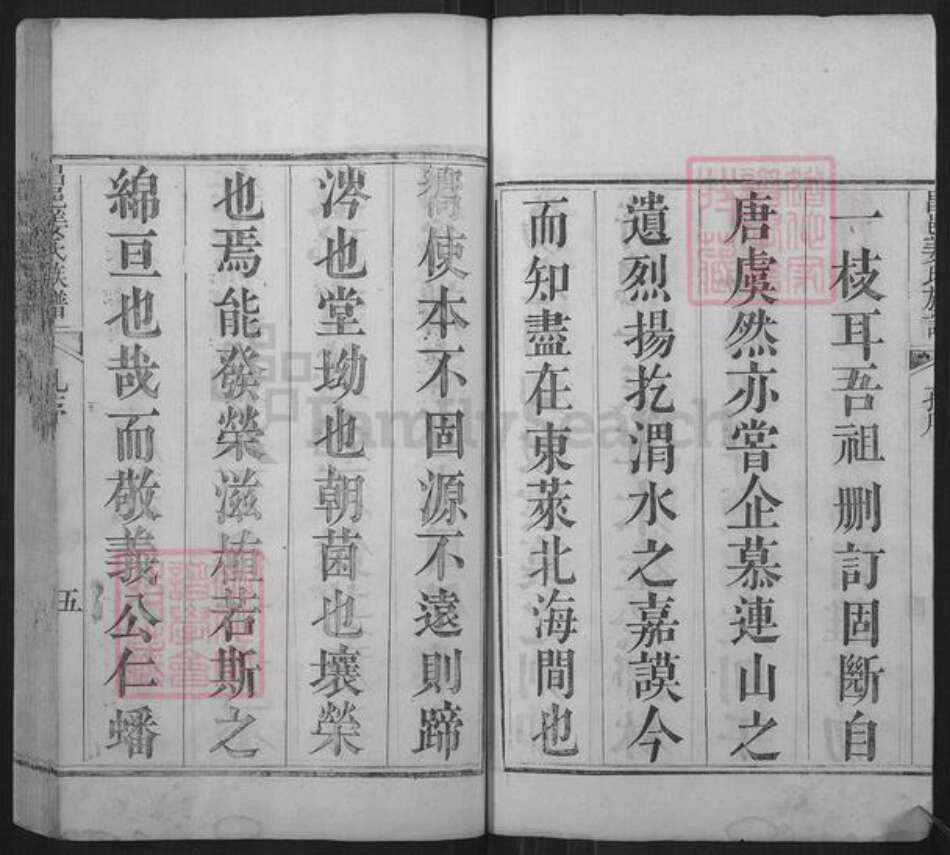 一枝耳吾祖刪訂固斷自
唐虞然亦嘗企慕連山之
遺烈揚扢渭水之嘉謨今
而知盡在東萊北海間也
使本不固源不遠則蹄
涔也堂坳也朝菌也壤榮
也焉能發榮滋植若斯之
綿亘也哉而敬義公仁蟠
族譜
五
FamilySearch